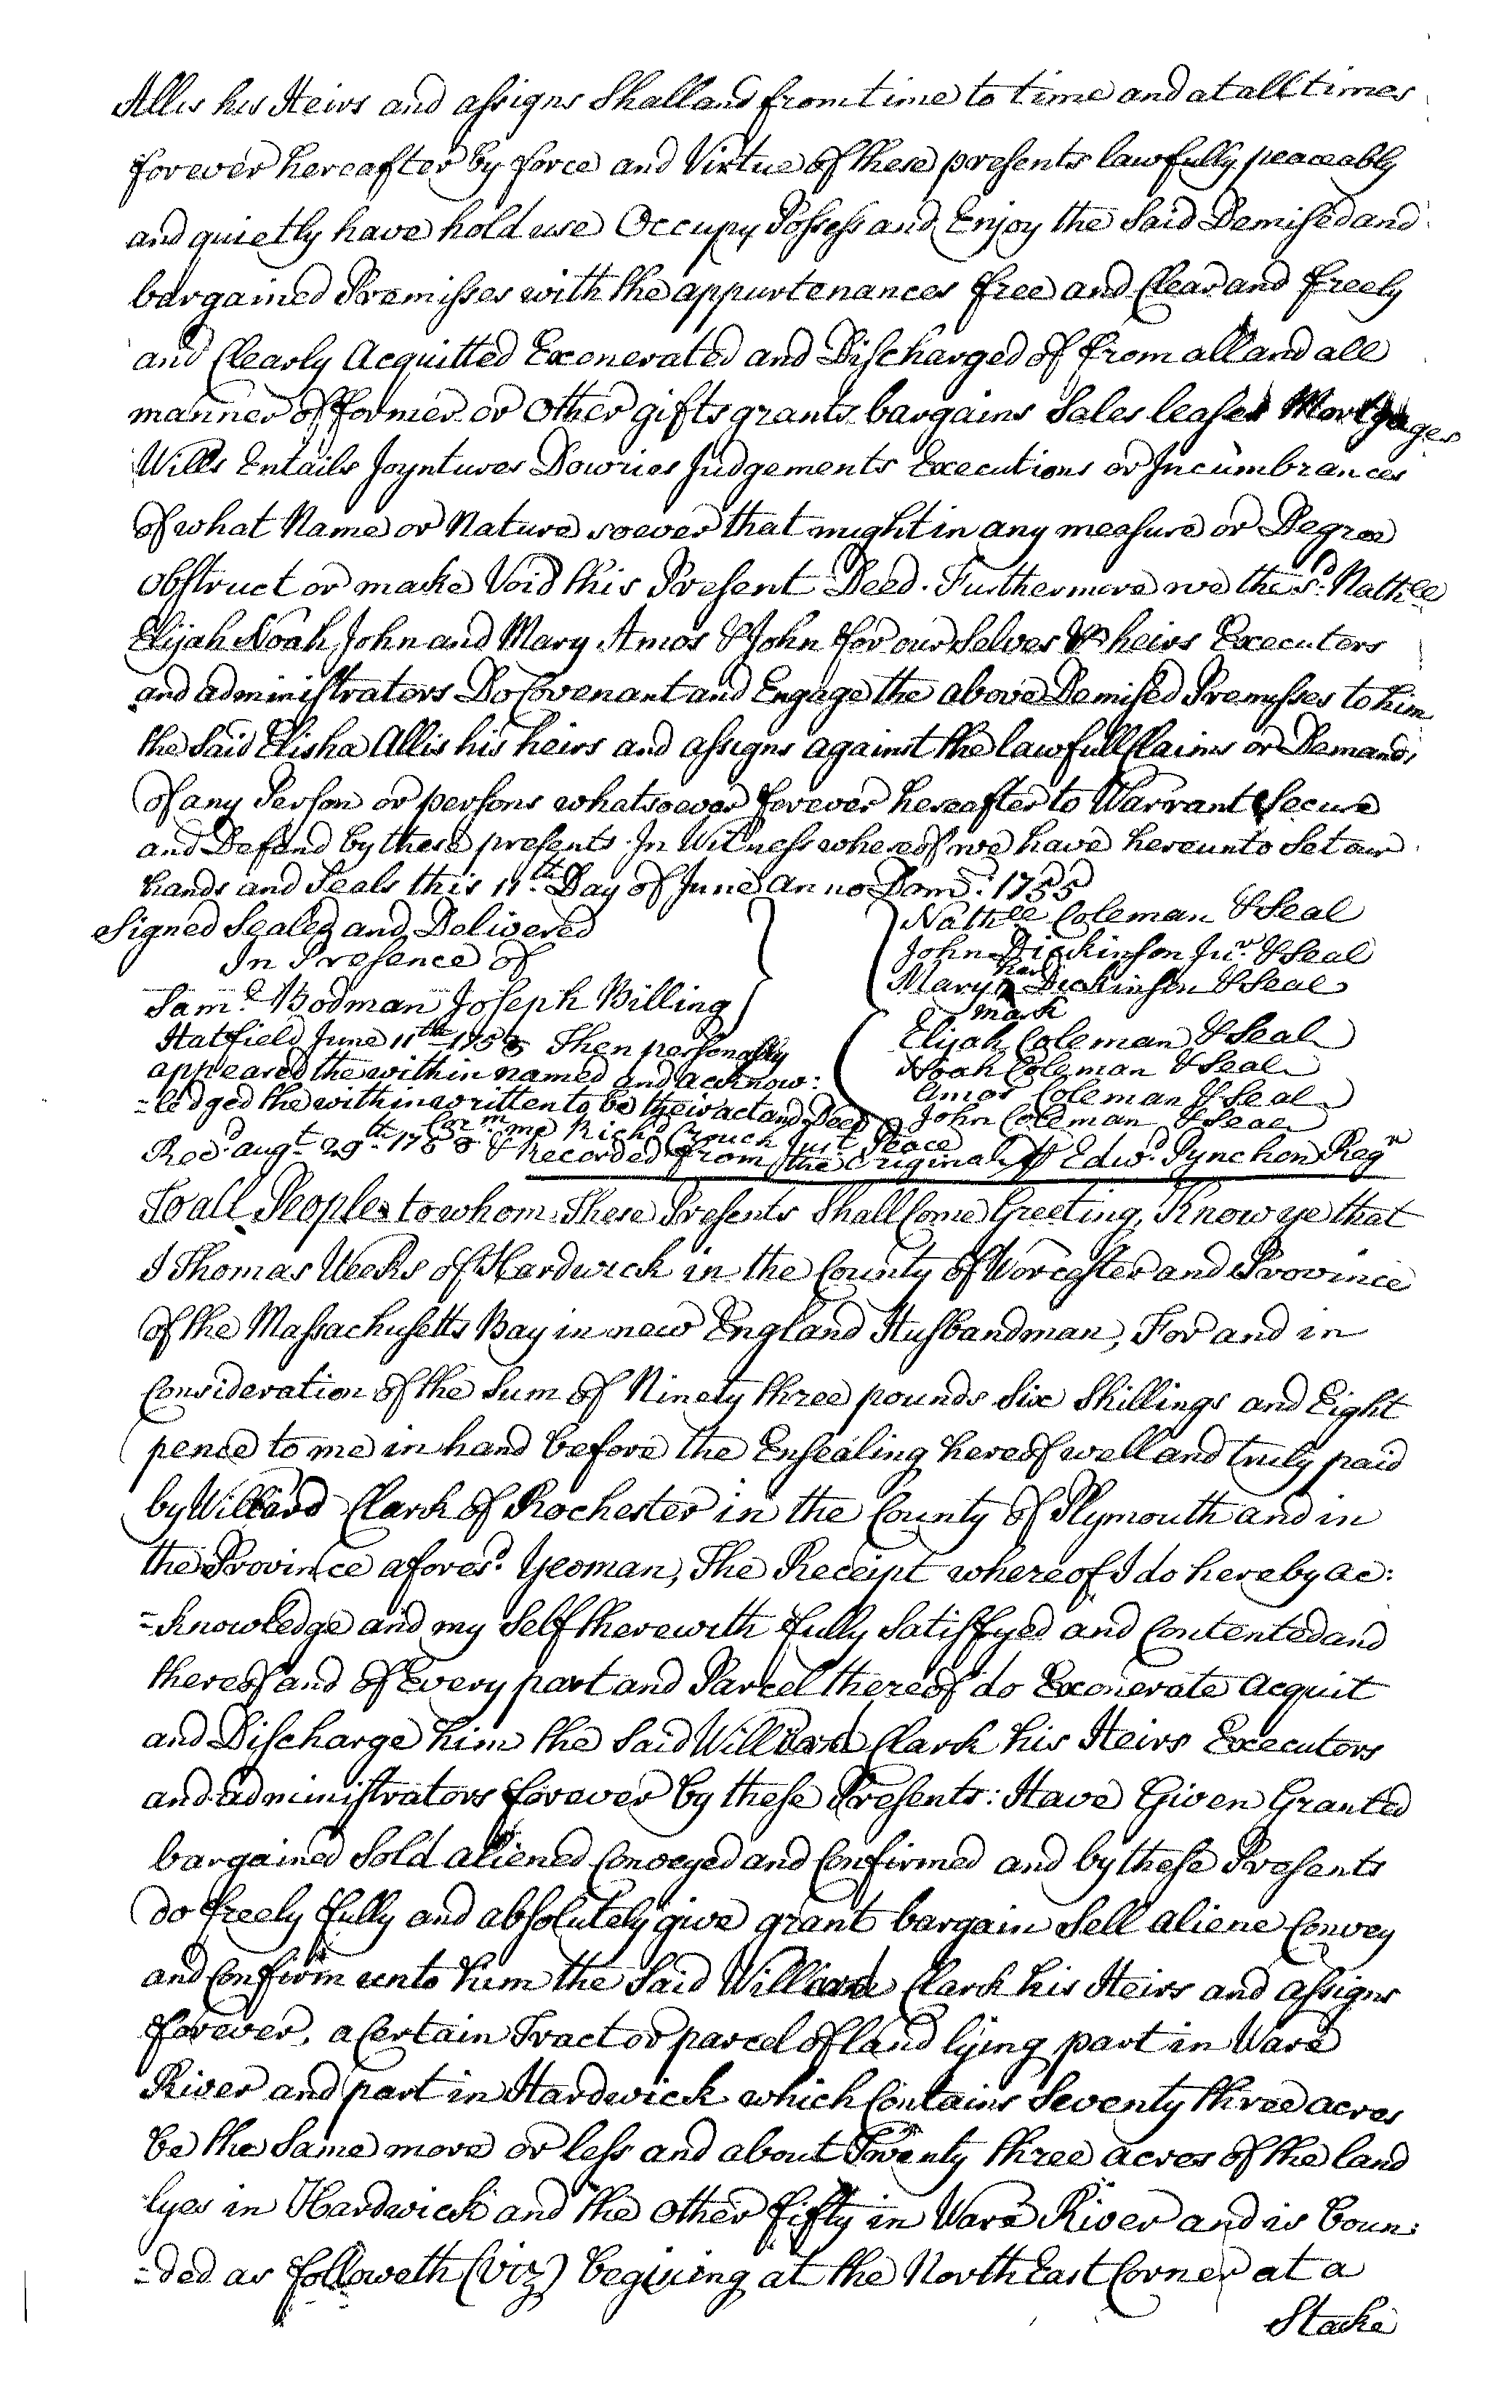 Allis his Heirs and assigns Shall and from time to time and at all times
forever hereafter by force and Virtue of these presents lawfully peaceably
and quietly have hold use Occupy Possess and Enjoy the Said Demised and
bargained Premisses with the appurtenances free and Clear and freely
and Clearly Acquitted Exonerated and Discharged of from all and all
manner of former or Other gifts grants bargains Sales leases Mortgages
Wills Entails Joyntures Dowries Judgements Executions or Incumbrances
of what Name or Nature soever that might in any measure or Degree
obstruct or make Void this Present Deed. Furthermore we the sd. Nathll
Elijah Noah John and Mary Amos & John for our Selves & heirs Executers
and administrators Do Covenant and Engage the above Demised Premisses to him
the Said Elisha Allis his heirs and assigns against the lawfull Claims or Demands
of any Person or persons whatsoever forever hereafter to Warrant Secure
and Defend by these presents. In Witness whereof we have hereunto Set our
hands and Seals this 11th. Day of June anno Domi: 1755
Signed Sealed and Delivered
In Presence of
Saml. Bodman Joseph Billing
Nathll Coleman & Seal
John Dickinson Junr. & Seal
Mary her mark Dickinson & Seal
Elijah Coleman & Seal
Noah Coleman & Seal
Amos Coleman & Seal
John Coleman & Seal
Hatfield June 11th 1755 Then personally
appeared the within named and acknow:
=ledged the within written to be their act and Deed
Cor. me Richd. Crouch Just Peace
Recd. augt. 29th. 1755 & Recorded from the Original Edwd. Pynchon Regr
To all People to whom These Presents Shall Come Greeting, Know ye that
I Thomas Weeks of Hardwick in the County of Worcester and Province
of the Massachusetts Bay in new England Husbandman, For and in
Consideration of the Sum of Ninety three pounds Six Shillings and Eight
pence to me in hand before the Ensealing hereof well and truly paid
by Willard Clark of Rochester in the County of Plymouth and in
the Province aforesd. Yeoman, The Receipt whereof I do hereby ac:
=knowledge and my Self therewith fully Satisfyed and Contented and
thereof and of Every part and Parcel thereof do Exonerate acquit
and Discharge him the Said Willard Clark his Heirs Executors
and administrators forever by these Presents: Have Given Granted
bargained Sold aliened Conveyed and Confirmed and by these Presents
do freely fully and absolutely give grant bargain Sell aliene Convey
and Confirm unto him the Said Willard Clark his Heirs and assigns
forever, a Certain Tract or parcel of land lying part in Ware
River and part in Hardwick which Contains Seventy three acres
be the Same more or less and about Twenty three acres of the land
lyes in Hardwick and the other fifty in Ware River and is boun:
=ded as followeth (viz) begining at the North East Corner at a
Stake